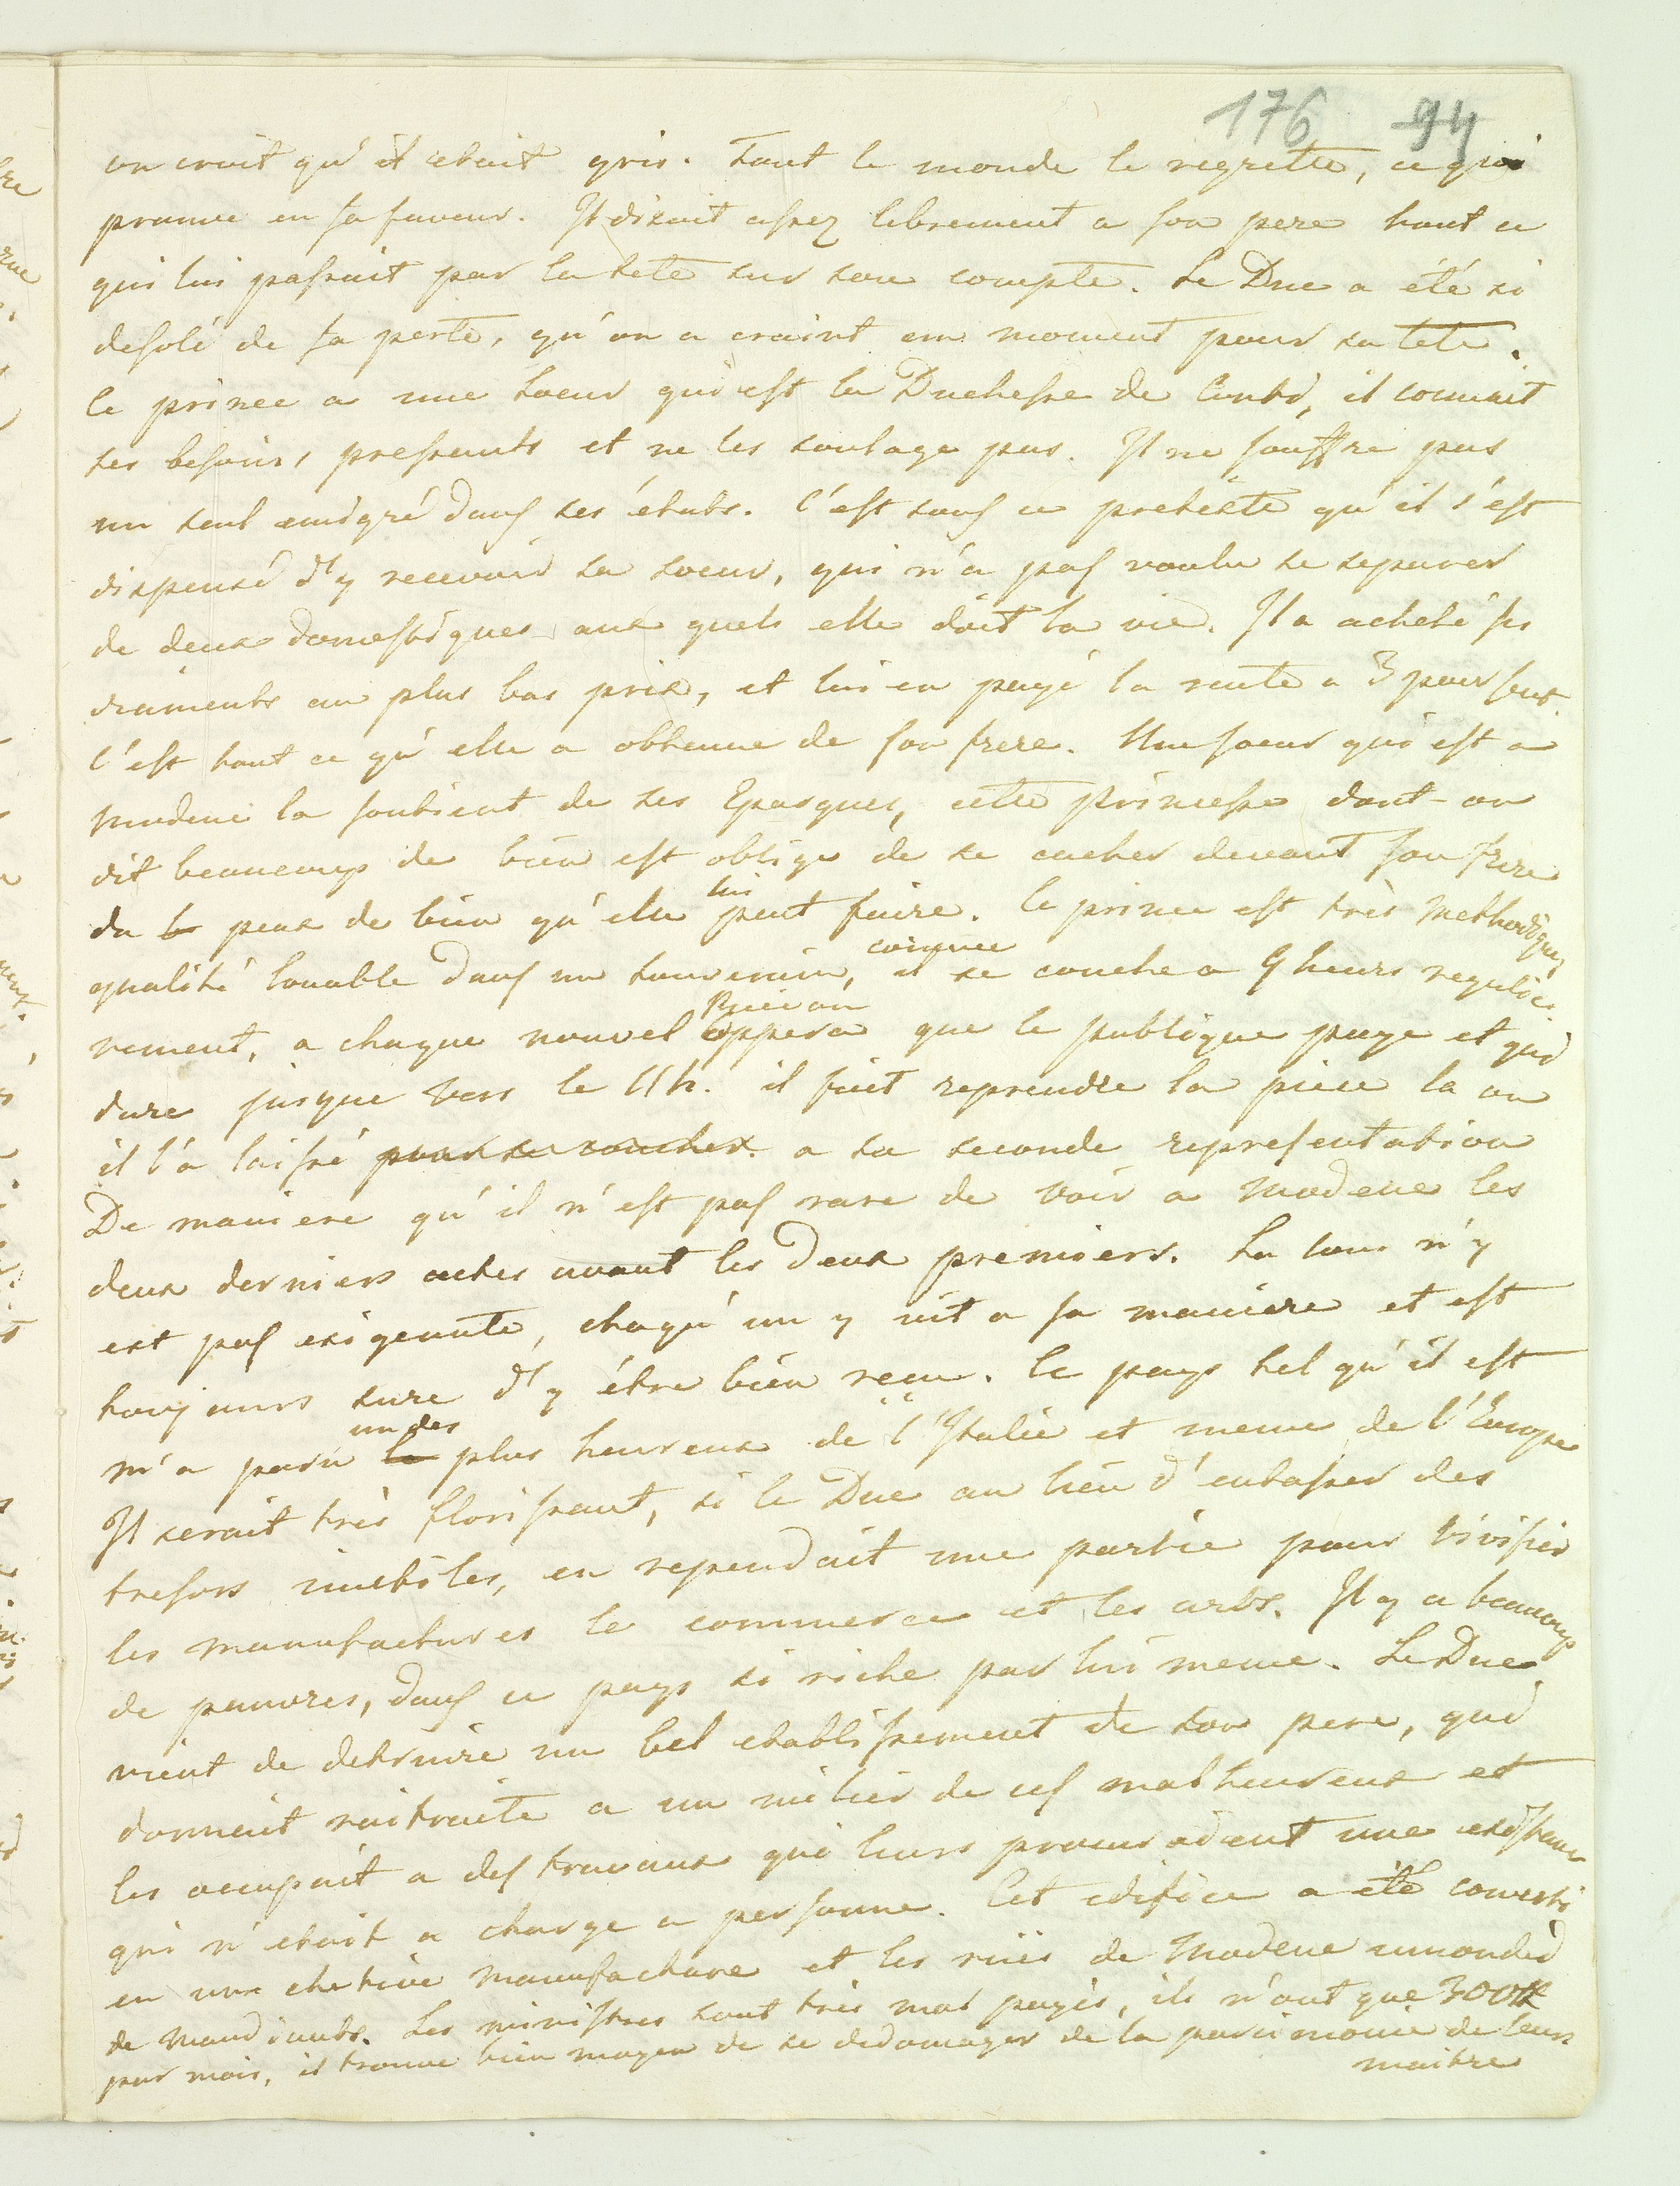 176 94
on croit qu'il etait gris. tout le monde le regrette, ce qui
prouve en sa faveur. Il disait assez librement a son pere tout ce
qui lui passait par la tete sur son compte. Le Duc a été si
desolé de sa perte, qu'on a craint un moment pour sa tete.
Ce prince a une soeur qui est la Duchesse de Conti, il connait
ses besoins pressants et ne les soulage pas. Il ne souffre pas
un seul emigré dans ses états. C'est sous ce pretexte qu'il s'est
dispensé d'y recevoir sa soeur, qui n'a pas voulu se separer
de deux domestiques aux quels elle doit la vie. Il a acheté ses
diaments au plus bas prix, et lui en paye la rente a 3 pour sent.
C'est tout ce qu'elle a obtenue de son frere. Une soeur qui est a
modene la soutient de ses Epargnes, cette princesse dont-on
dit beaucoup de bien est oblige de se cacher devant son frere
du peux de bien qu'elle lui peut faire. Ce prince est très methodique,
qualité louable dans un souverain, comme il se couche a 9 heurs regulie-
rement, a chaque nouvel oppera que le publique paye et qui
dure jusque vers le 11 h. il fait reprendre la piece la ou
il l'a laissé pour se coucher. a sa seconde representation
De maniere qu'il n'est pas rare de voir a modene les
deux derniers actes avant les deux premiers. La cour n'y
est pas exigeante, chaqu'un y vit a sa maniere et est
toujours sure d'y être bien reçu. Ce pays tel qu'il est
m'a paru un des le plus heureux de l'Italie et meme de l'Europe
Il serait très florissant, si le Duc au lieu d'entasser des
tresors inutiles, en rependait une partie pour vivifier
les manufactures le commerce et les arts. Il y a beaucoup
de pauvres, dans ce pays si riche par lui meme. Le Duc
vient de detruire un bel etablissement de son pere, qui
donnait raitraite a un milier de ces malheureux et
les occupait a des travaux qui leurs procuraient une existence
qui n'etait a charge a personne. Cet edifice a été converti
en une chetive manufacture et les rües de Modene innondé
de mandiants. Les ministres sont très mal payés, ils n'ont que 300 ₶
par mois, il trouve bien moyen de se dedomager de la parcimonie de leur
maitre